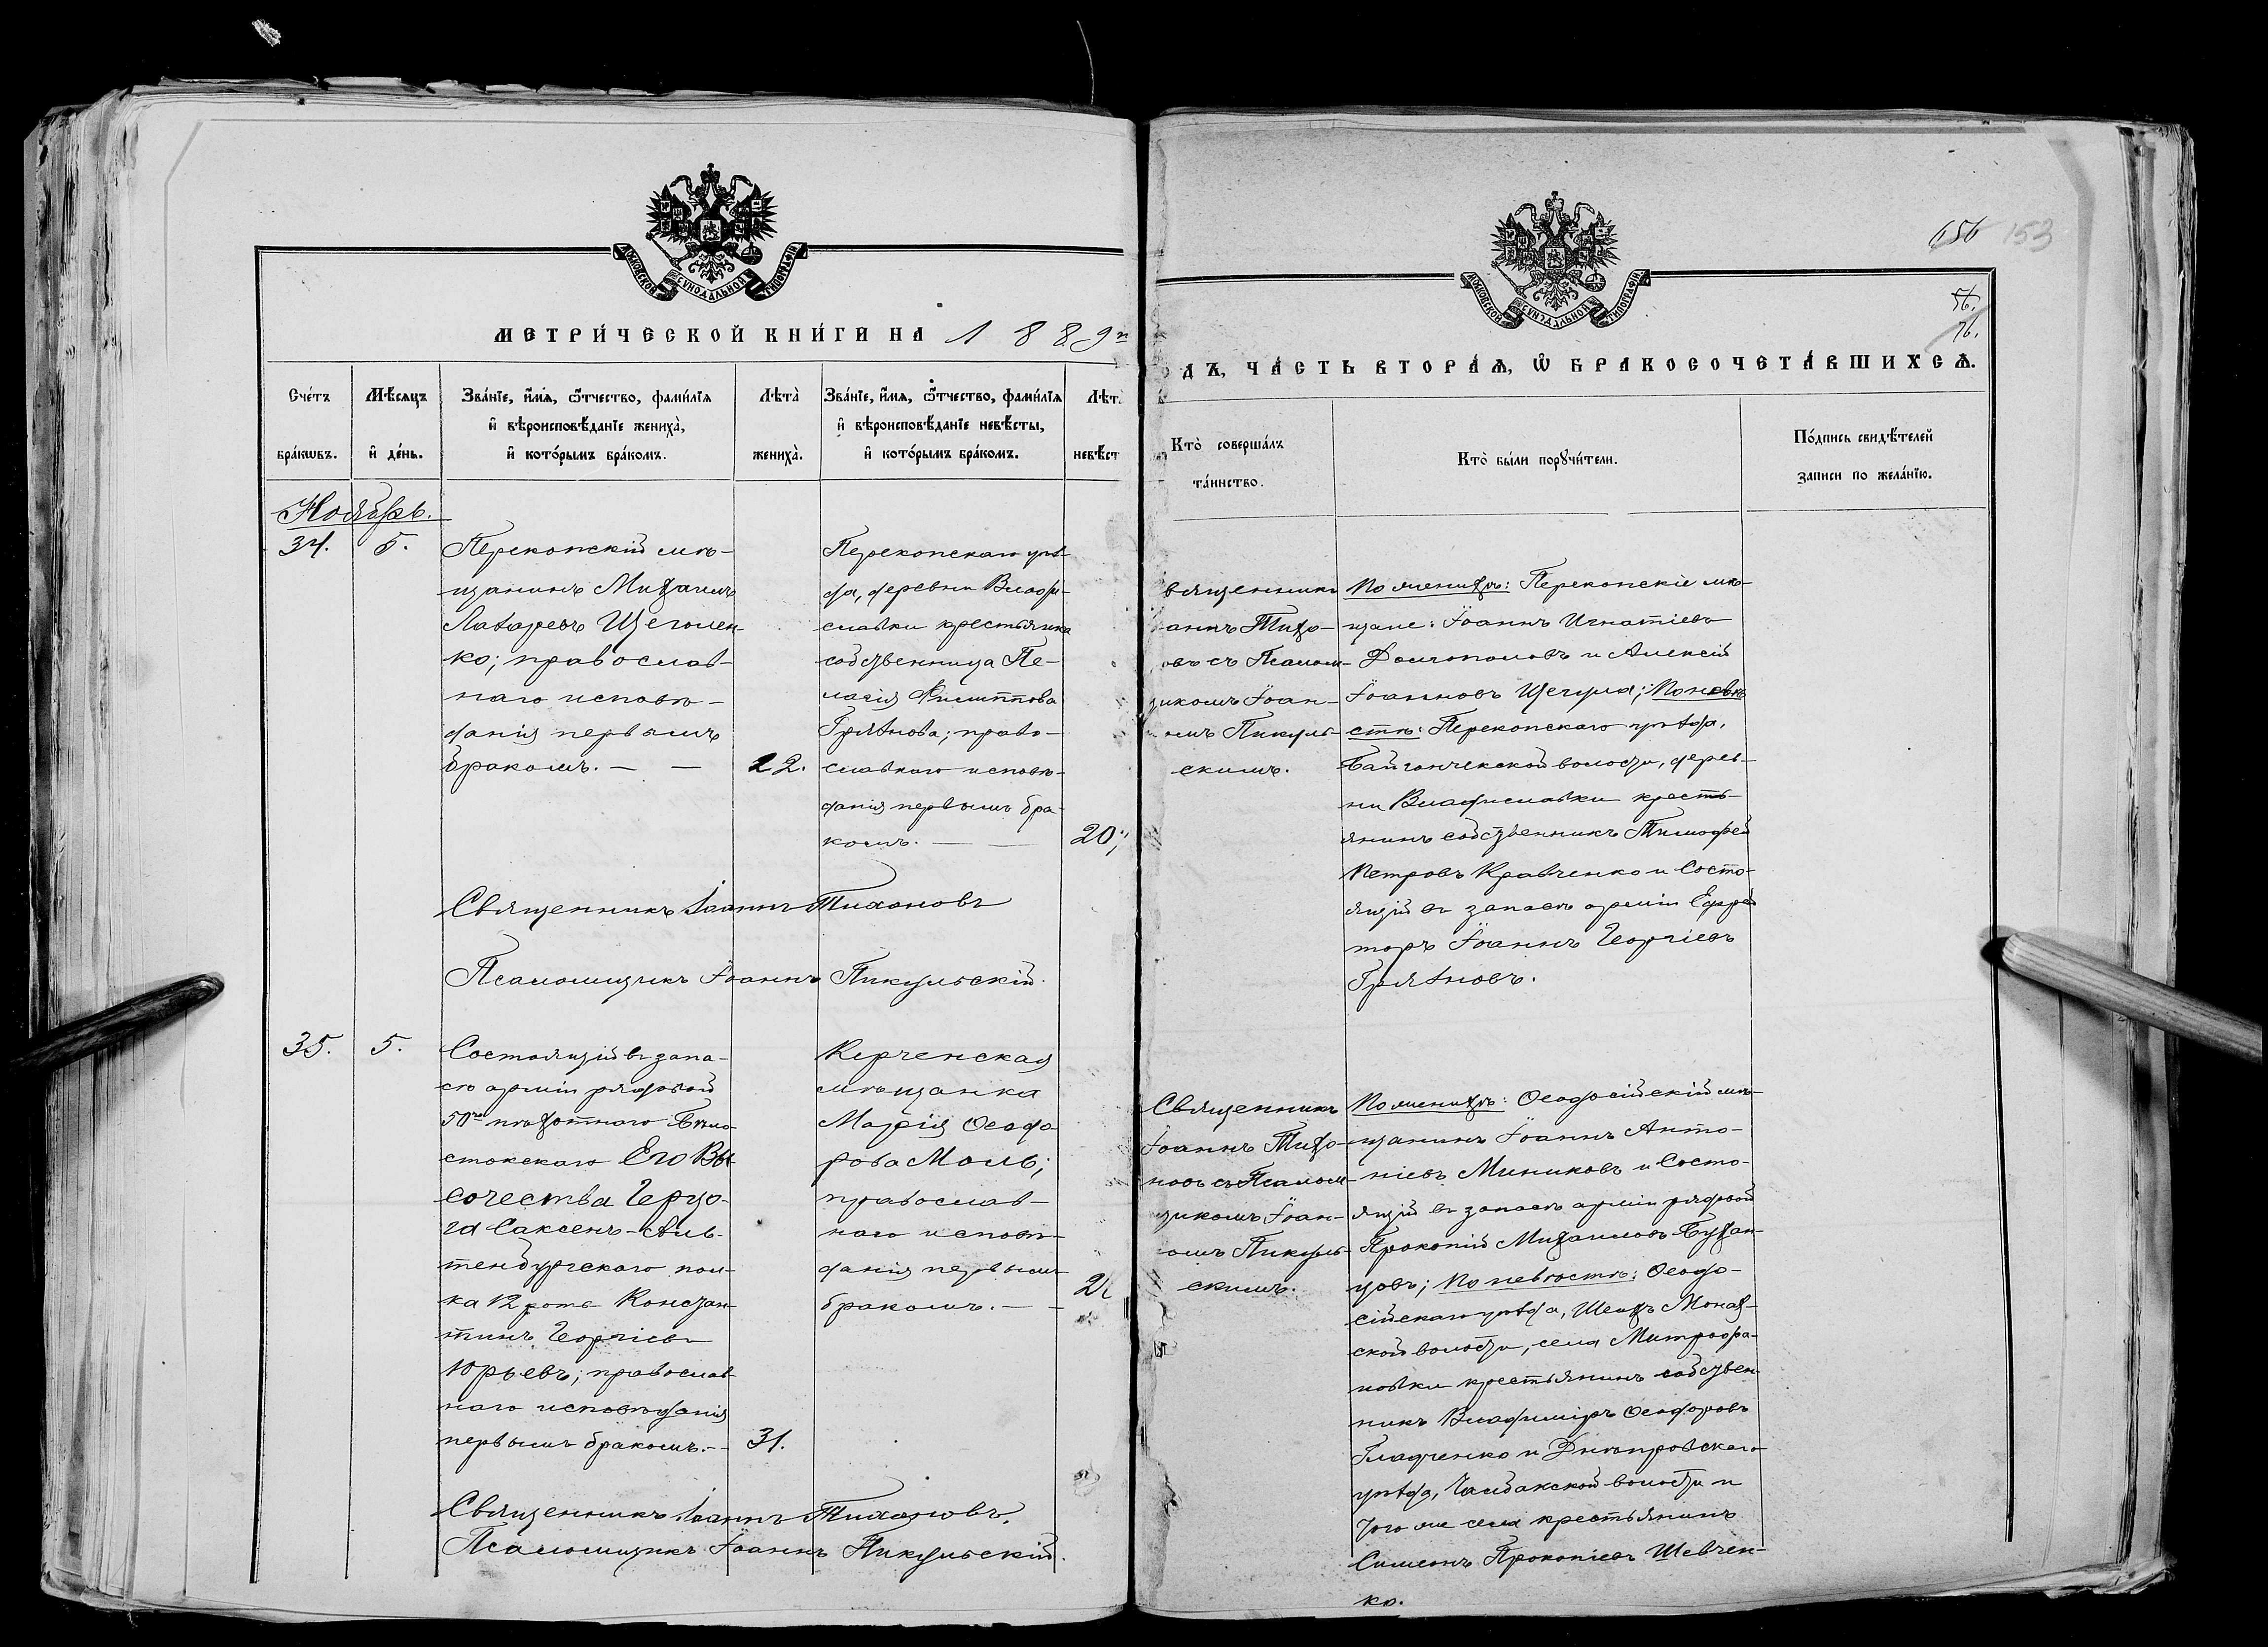 МОСКОВСКОЙ СУНОДАЛЬНОЙ ТИПОГРАФІИ
МЕТРИ́ЧЕСКОЙ КНИ́ГИ НА 1889
Сче́тъ бра́кѡвъ.
Мѣ́сяцъ и де́нь.
Зва́нїе, и́мѧ, ѻ́тчество, фами́лїѧ
и вѣроисповѣ́данїе жениха̀,
и кото́рымъ бра́комъ.
Лѣта̀ жениха̀.
Зва́нїе, и́мѧ, ѻ́тчество, фами́лїѧ
и вѣроисповѣ́данїе невѣ́сты,
и кото́рымъ бра́комъ.
Лѣт
невѣ́ст
Ноябрь.
34. 5.
Перекопскій мѣ-
щанинъ Михаилъ
Лазаревъ Щеголен-
ко; православ-
наго исповѣ-
данія первымъ
бракомъ. — —
22.
Перекопскаго уѣз-
да, деревни Влади-
славки крестьянка
собственница Пе-
лагія Филиппова
Грязнова; право-
славнаго исповѣ-
данія первымъ бра-
комъ. — —
20;
Священникъ Іоаннъ Тихоновъ
Псаломщикъ Іоаннъ Пикульскій.
35. 5.
Состоящій въ запа-
сѣ арміи рядовой
50го пѣхотнаго Бѣло-
стокскаго Его Вы-
сочества Герцо-
га Саксенъ-Аль-
тенбургскаго пол-
ка 12 роты Констан-
тинъ Георгіевъ
Юрьевъ; православ-
наго исповѣданія
первымъ бракомъ. —
31.
Керченская
мѣщанка
Марія Ѳеодо-
рова Моль;
православ-
наго исповѣ-
данія первымъ
бракомъ. — —
Священникъ Іоаннъ Тихоновъ.
Псаломщикъ Іоаннъ Пикульскій.
МОСКОВСКОЙ СУНОДАЛЬНОЙ ТИПОГРАФІИ
656 153
56.
76.
ДЪ, ЧА́СТЬ ВТОРА́Ѧ, Ѡ БРАКОСОЧЕТА́ВШИХСѦ.
Кто̀ соверша́лъ
та́инство.
Кто̀ бы́ли порꙋчи́тели.
По́дпись свидѣ́телей
записи по жела́нїю.
вященникъ
аннъ Тихо-
овъ съ Псалом-
щикомъ Іоан-
омъ Пикуль-
скимъ.
По женихѣ: Перекопскіе мѣ-
щане: Іоаннъ Игнатіевъ
Долгополовъ и Алексій
Іоанновъ Щегула; По невѣ-
стѣ: Перекопскаго уѣзда,
Байгончекской волости, дерев-
ни Владиславки кресть-
янинъ собственникъ Тимофей
Петровъ Кравченко и Состо-
ящій въ запасѣ арміи Ефрей
торъ Іоаннъ Георгіевъ
Грязновъ.
Священникъ
Іоаннъ Тихо-
новъ съ Псалом-
щикомъ Іоан-
омъ Пикуль-
скимъ.
По женихѣ: Ѳеодосійскій мѣ-
щанинъ Іоаннъ Анто-
ніевъ Миниковъ и Состо-
ящій въ запасѣ арміи рядовой
Прокопій Михаиловъ Бухан-
цовъ; По невѣстѣ: Ѳеодо-
сійскаго уѣзда, Шейхъ Монах-
ской волости, села Митрофа-
новки крестьянинъ собствен-
никъ Владиміръ Ѳеодоровъ
Гладченко и Днѣпровскаго
уѣзда, Чалбакской волости и
того же села крестьянинъ
Симеонъ Прокопіевъ Шевчен-
ко.